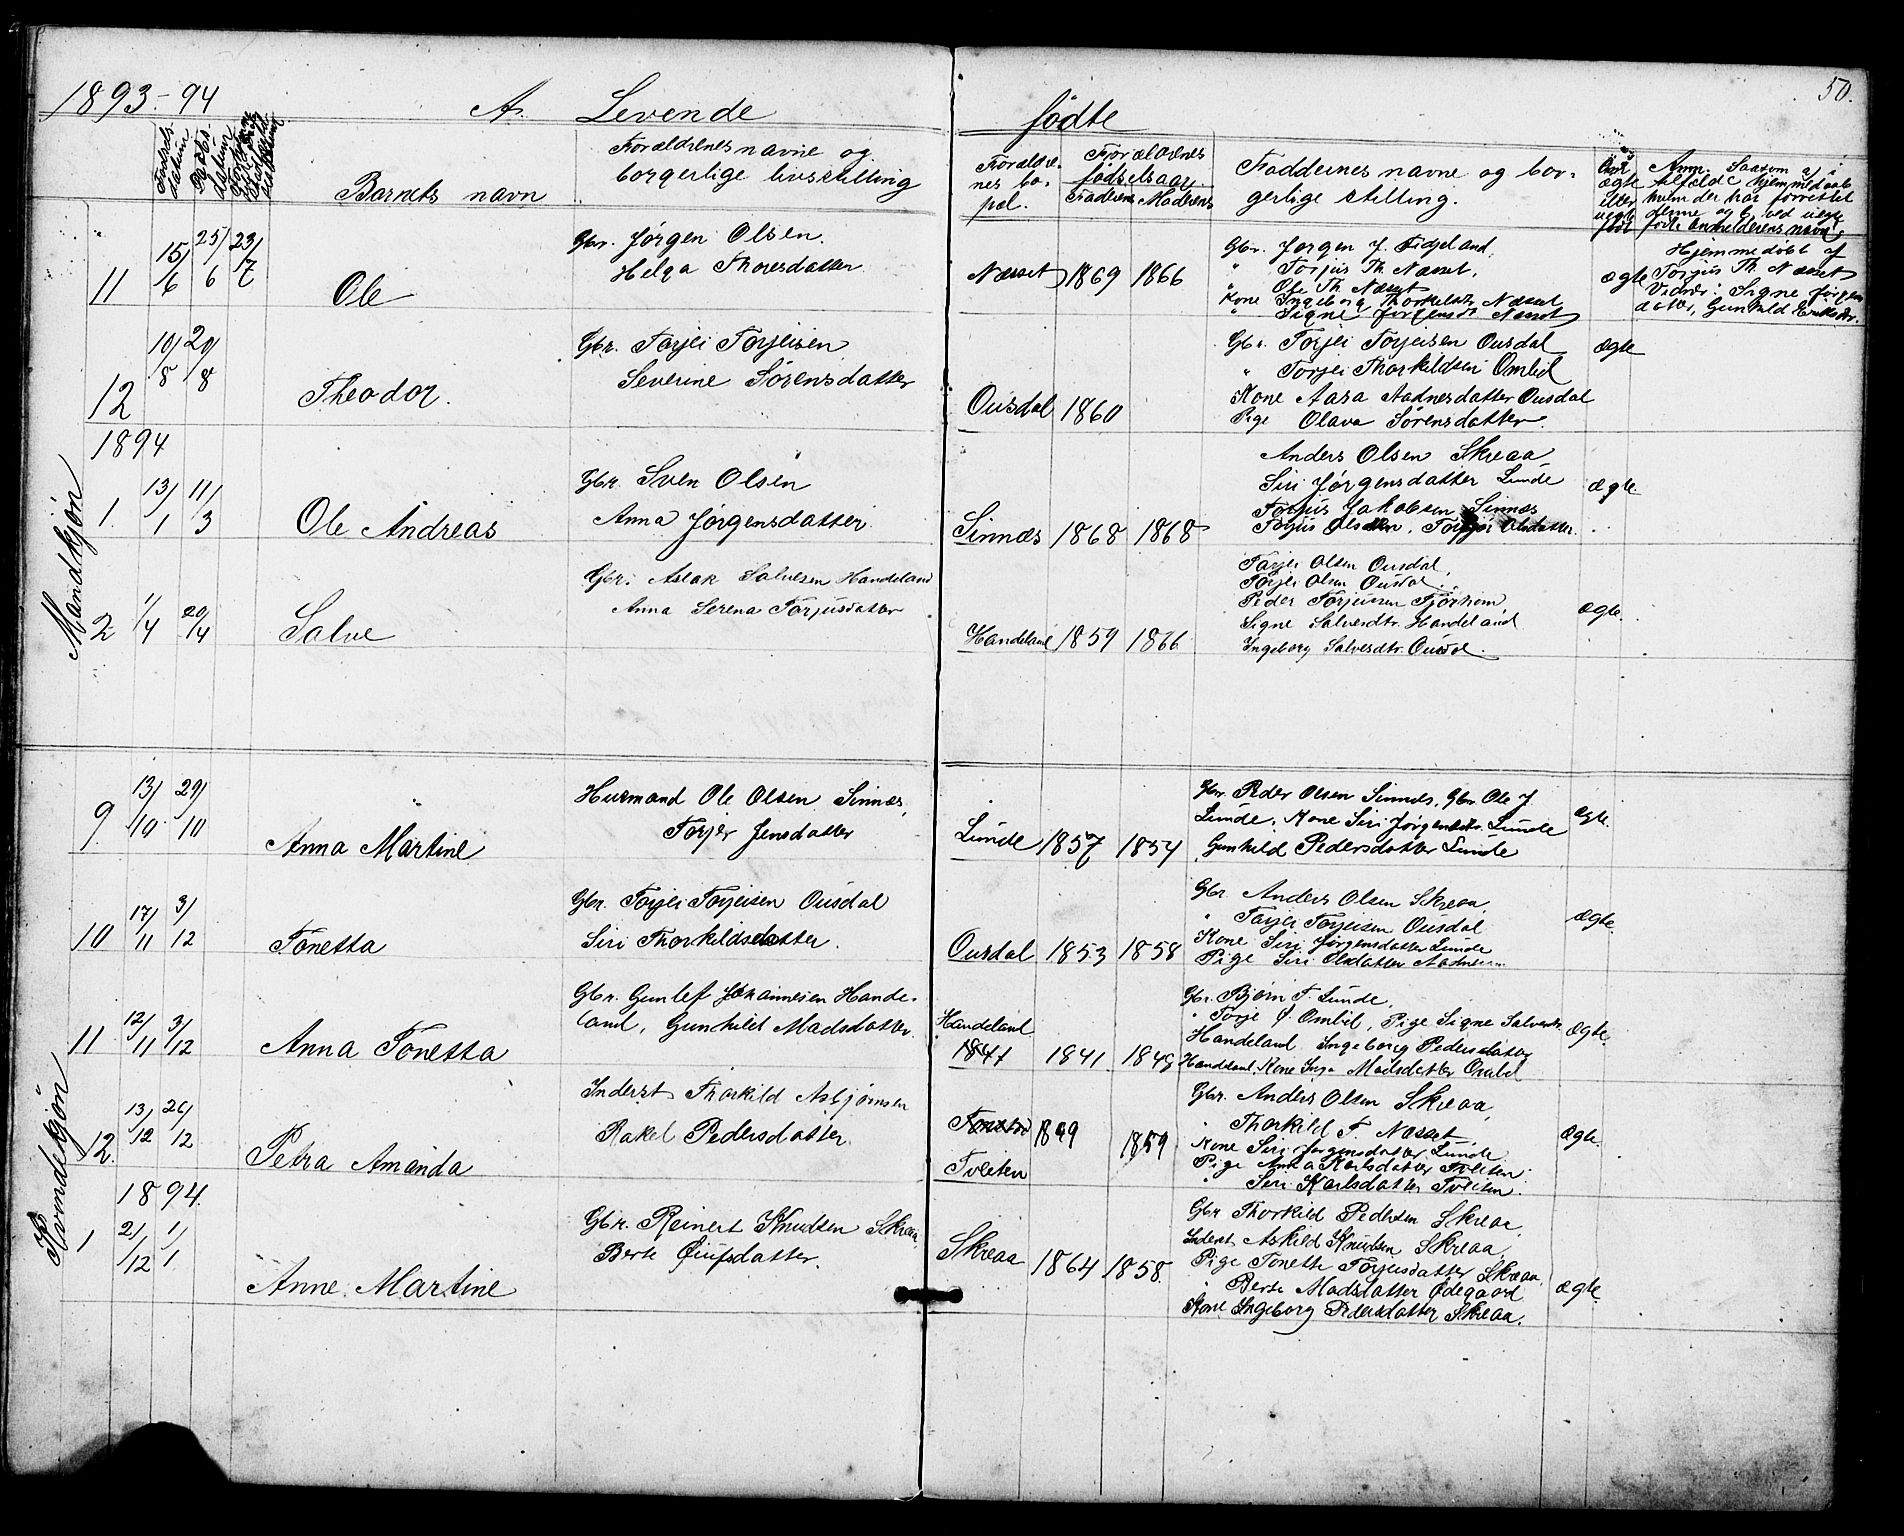 1893-94 A. Levende fødte 50.
Fødsels datum
Barnets navn
Forældrenes navne og borgerlige livsstilling
Forældrenes bopæl.
Forældrenes fødselsaar. Faderens Moderens
Faddernes navne og borgerlige stilling.
ægte eller uægte født
Mandkjøn
11 15/6 25/6 23/7 Ole
Gbr. Jørgen Olsen.
Helga Thoresdatter
Næsset 1869 1866
Gbr. Jørgen J. Fidjeland,
" Torjus Th. Næsset,
" Ole Th. Næsset
Kone Ingeborg Thorkelsdtr Næsset
" Signe Jørgensdt Næsset
ægte
Hjemmedøbt af
Torjus Th. Næsset
Vidner: Signe Jørgens
datter, Gunhild
12 10/8 20/8 Theodor.
Gbr. Torjei Torjeisen
Severine Sørensdatter
Ousdal 1860
Gbr. Torjei Torjeisen Ousdal
" Torjei Thorkildsen Omlid
Kone Aasa Aadnesdatter Ousdal
Pige Olava Sørensdatter
ægte
1894
1. 13/1 11/3 Ole Andreas
Gbr. Sven Olsen
Anna Jørgensdatter
Sinnæs 1868 1868
Anders Olsen Skreaa
Siri Jørgensdatter Lunde
Torjus Jakobsen Sinnæs
Torjus Olsen, Olsdatter.
ægte
2 1/4 20/4 Salve
Gbr. Aslak Salvesen Handeland
Anna Serena Torjusdatter
Handeland 1859 1866
Tarjei Olsen Ousdal,
Torjei Olsen Ousdal
Peder Torjeusen Fjørhom
Signe Salvesdtr. Handeland
Ingeborg Salvesdtr. Ousdal.
ægte.
Kvindekjøn
9. 13/10 29/10 Anna Martine
Husmand Ole Olsen Sinnæs,
Torjer Jensdatter
Lunde 1857 1854
Gbr. Peder Olsen Sinnæs, Gbr. Ole J.
Lunde, Kone Siri Jørgensdtr. Lunde
Gunhild Pedersdatter Lunde
ægte.
10 17/11 3/12 Tonetta
Gbr. Torjei Torjeisen Ousdal
Siri Thorkildsdatter.
Ousdal 1853 1858
Gbr. Anders Olsen Skreaa,
" Tarjei Torjeisen Ousdal
Kone Siri Jørgensdatter Lunde
Pige Siri Olsdatter
ægte.
11 12/11 3/12 Anna Tonetta
Gbr. Gunlef Johannesen Hande-
land, Gunhild Madsdatter.
Handeland
1841 1841 1849
Gbr. Bjørn T. Lunde,
" Torje Ø. Omlid, Pige Signe Salvesdtr.
Handeland Ingeborg Pedersdatter
Handeland, Kone Inga Madsdatter Omlid
ægte.
12. 13/12 26/12 Petra Amanda
Inderst Thorkild Asbjørnsen
Rakel Pedersdatter.
Tveiten 1849 1859
Gbr. Anders Olsen Skreaa,
" Thorkild T. Næsset,
Kone Siri Jørgensdatter Lunde
Pige Anna Karlsdatter Tveiten
" Siri Karlsdatter Tveiten.
ægte.
1894.
1 21/12 1/1 Anne Martine
Gbr. Reinert Knudsen Skreaa,
Berte datter.
Skreaa 1864 1858
Gbr Thorkild Pedersen Skreaa,
Inderst Askild Knudsen Skreaa,
Pige Tonette Torjusdatter Skreaa,
" Berte Madsdatter Ødegaard
Kone Ingeborg Pedersdatter Skreaa.
ægte.